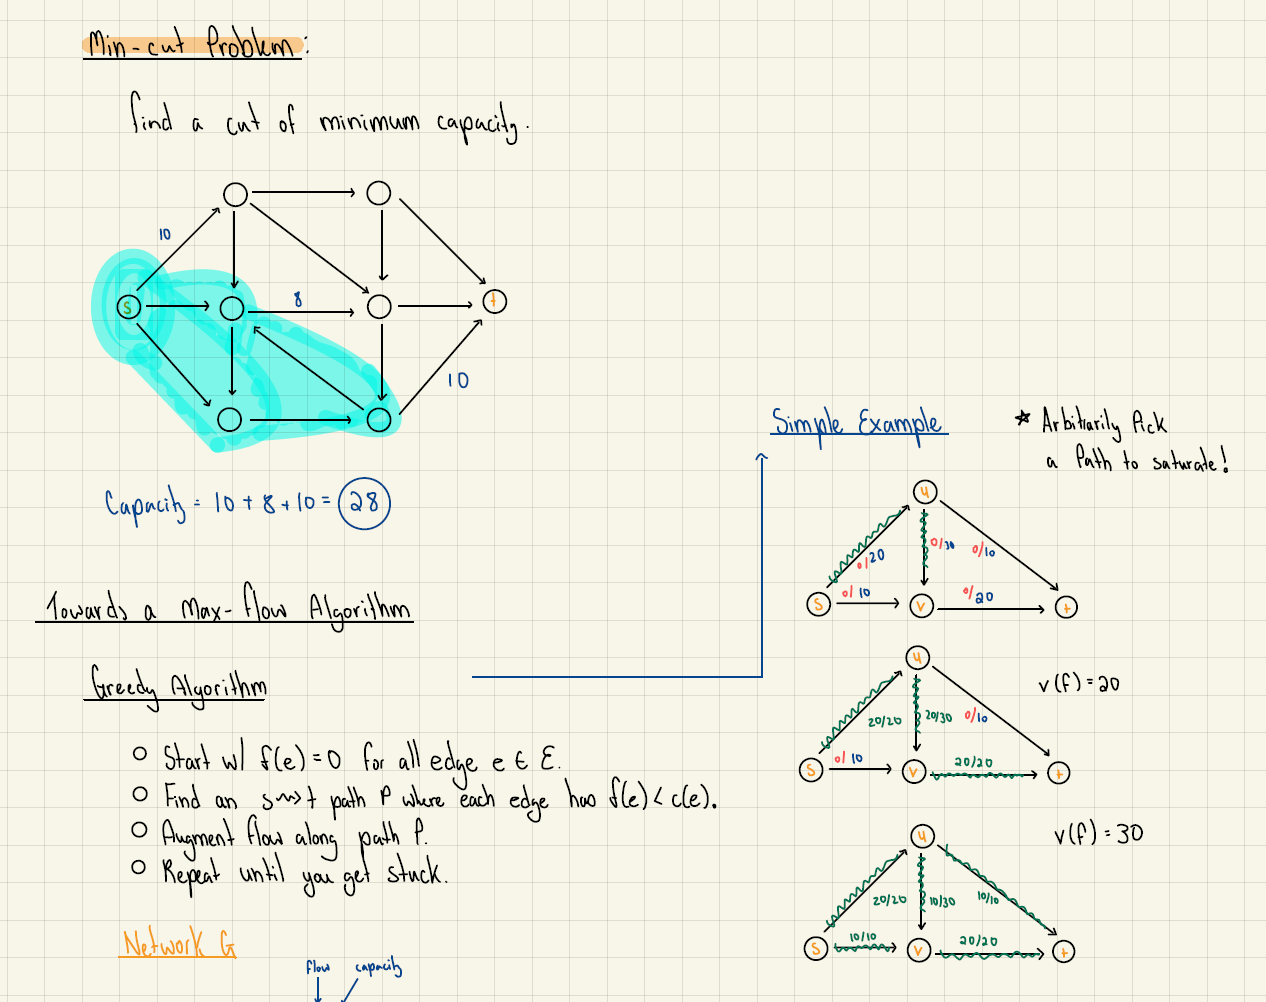 Min-cut Problem:
find a cut of minimum capacity.
10
s
8
t
10
Capacity = 10 + 8 + 10 = 28
Towards a Max-flow Algorithm
Greedy Algorithm
Start w/ f(e) = 0 for all edge e ∈ E.
Find an s⇝t path P where each edge has f(e) < c(e).
Augment flow along path P.
Repeat until you get stuck.
Network G
flow capacity
Simple Example
* Arbitrarily Pick
a Path to saturate!
u
0/20 0/30 0/10
s 0/10 v 0/20 t
u
v(f) = 20
20/20 20/30 0/10
s 0/10 v 20/20 t
u
v(f) = 30
20/20 10/30 10/10
s 10/10 v 20/20 t